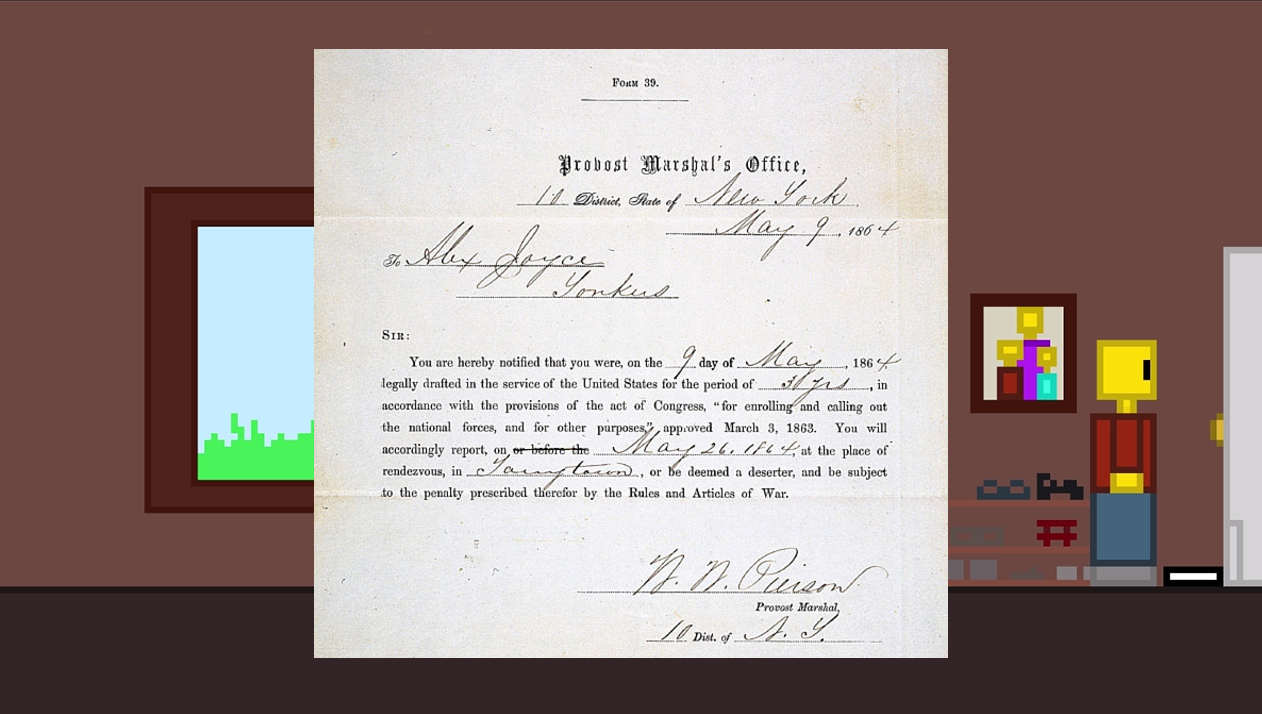 Form 39.
Provost Marshal's Office,
10 District, State of New York
May 9, 1864
To Alex Joyce
Yonkers
Sir:
You are hereby notified that you were, on the 9 day of May, 1864
legally drafted in the service of the United States for the period of 3 yrs, in
accordance with the provisions of the act of Congress, "for enrolling and calling out
the national forces, and for other purposes," approved March 3, 1863. You will
accordingly report, on or before the May 26. 1864, at the place of
rendezvous, in Tarrytown, or be deemed a deserter, and be subject
to the penalty prescribed therefor by the Rules and Articles of War.
W. W. Pierson
Provost Marshal,
10 Dist. of N. Y.